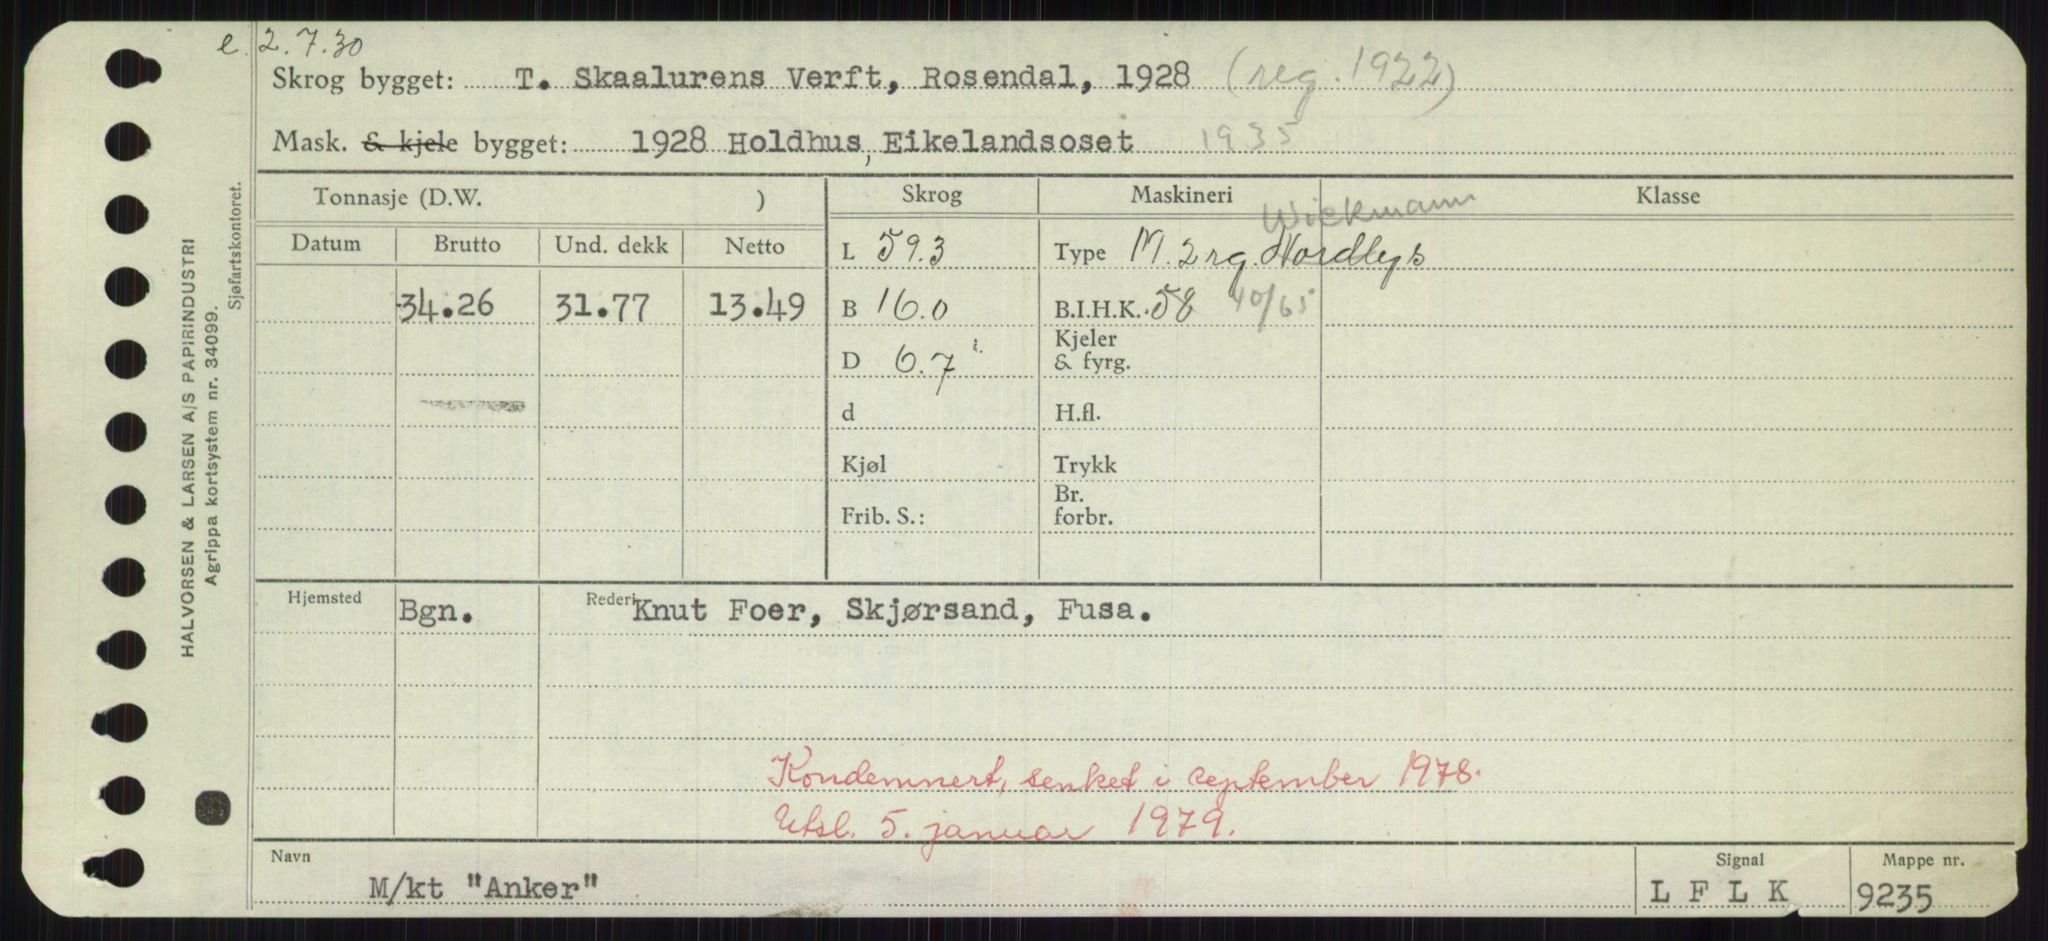 e. 2.7.30
Skrog bygget: T. Skaalurens Verft, Rosendal, 1928 (reg. 1922)
Mask. & kjele bygget: 1928 Holdhus, Eikelandsoset 1935
Tonnasje (D.W. ) Skrog Maskineri Klasse
Wickmann
Datum Brutto Und. dekk Netto L 59.3 Type M. 2 rg. Nordlys
34.26 31.77 13.49 B 16.0 B.I.H.K. 58 40/65
D 6.7 Kjeler & fyrg.
d H.fl.
Kjøl Trykk
Frib. S.: Br. forbr.
Hjemsted Bgn. Rederi Knut Foer, Skjørsand, Fusa.
Kondemnert, senket i september 1978.
Utsl. 5. januar 1979.
Navn Signal Mappe nr.
M/kt "Anker" L F L K 9235
HALVORSEN & LARSEN A/S PAPIRINDUSTRI
Agrippa kortsystem nr. 34099.
Sjøfartskontoret.